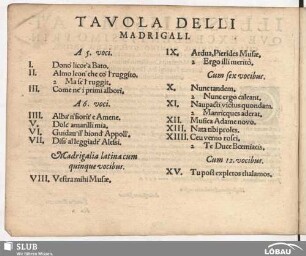 TAVOLA DELLI
MADRIGALI.
A 5. voci.
I. Donò licor'a Bato,
II. Almo leon' che co'l ruggito.
2 Ma se'l ruggit,
III. Come ne' i primi albori,
A 6. voci.
IIII. Alba'n fiorit' e Amene.
V. Dolc' amarilli mia,
VI. Guidat'il biond' Appoll',
VII. Disi' al leggiadr' Alessi.
Madrigalia latina cum
quinque vocibus.
VIII. Vestra mihi Musæ,
IX. Ardua, Pierides Musæ,
2 Ergo illi meritò,
Cum sex vocibus.
X. Nunc tandem,
2 Nunc ergo caleant,
XI. Naupacti victus quondam.
2 Manricques aderat,
XII. Musica Adamæ novo.
XIII. Nata tibi proles.
XIIII. Ceu verno roseï,
2 Te Duce Bœmiacis,
Cum 12. vocibus.
XV. Tu post expletos thalamos.
SLUB
Wir führen Wissen.
LÖBAU